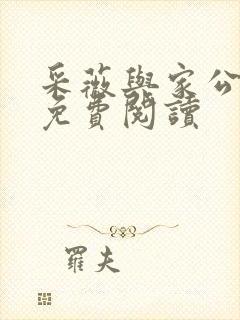 采薇與家公
免費閱讀
羅夫